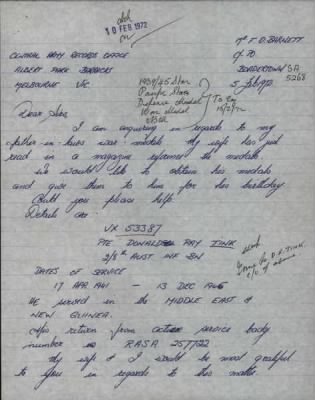 10 FEB 1972
Mr T D BARNETT
CENTRAL ARMY RECORDS OFFICE
ALBERT PARK BARRACKS
BORDERTOWN SA
5268
MELBOURNE VIC
1939/45 Star
Pacific Star
Defence Medal
War Medal
Dear Sirs
I am enquiring in regards to my
father-in-laws war medals. My wife has just
read in a magazine informer the medals
we would like to obtain his medals
and give them to him for his birthday
Could you please help.
Details are
VX 53387
PTE DONALD RAY TINK
2/8th AUST INF BN
DATES OF SERVICE
17 APR 1941 - 13 DEC 1945
HE served in the MIDDLE EAST &
NEW GUINEA.
His return from active service badge
number is RASA 257722
My wife & I would be most grateful
to you in regards to this matter.